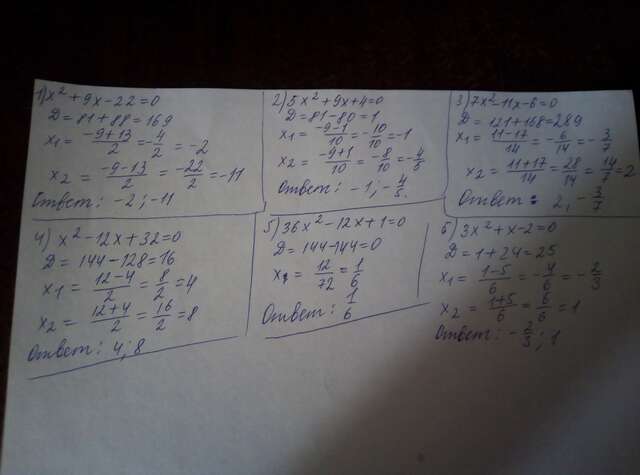 1) x² + 9x - 22 = 0
D = 81 + 88 = 169
x₁ = (-9+13)/2 = -4/2 = -2
x₂ = (-9-13)/2 = -22/2 = -11
Ответ: -2; -11
2) 5x² + 9x + 4 = 0
D = 81 - 80 = 1
x₁ = (-9-1)/10 = -10/10 = -1
x₂ = (-9+1)/10 = -8/10 = -4/5
Ответ: -1; -4/5.
3) 7x² - 11x - 6 = 0
D = 121 + 168 = 289
x₁ = (11-17)/14 = -6/14 = -3/7
x₂ = (11+17)/14 = 28/14 = 14/7 = 2
Ответ: 2, -3/7
4) x² - 12x + 32 = 0
D = 144 - 128 = 16
x₁ = (12-4)/2 = 8/2 = 4
x₂ = (12+4)/2 = 16/2 = 8
Ответ: 4; 8
5) 36x² - 12x + 1 = 0
D = 144 - 144 = 0
x = 12/72 = 1/6
Ответ: 1/6
6) 3x² + x - 2 = 0
D = 1 + 24 = 25
x₁ = (1-5)/6 = -4/6 = -2/3
x₂ = (1+5)/6 = 6/6 = 1
Ответ: -2/3; 1